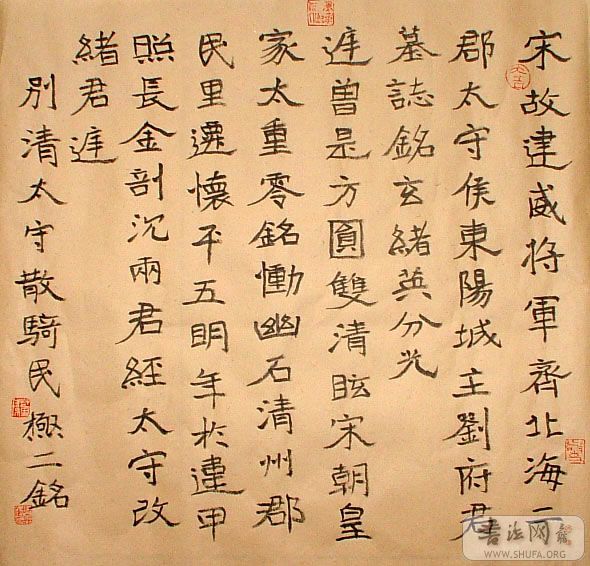 宋故建威将軍齊北海二
郡太守侯東陽城主劉府君
墓誌銘玄緒英分光
曽是方圓雙清眩宋朝皇
家太重零銘慟幽石清州郡
民里遷懷平五明年於建甲
照長金剖沉兩君經太守改
緒君
別清太守散騎民二銘
书法网
WWW.SHUFA.ORG